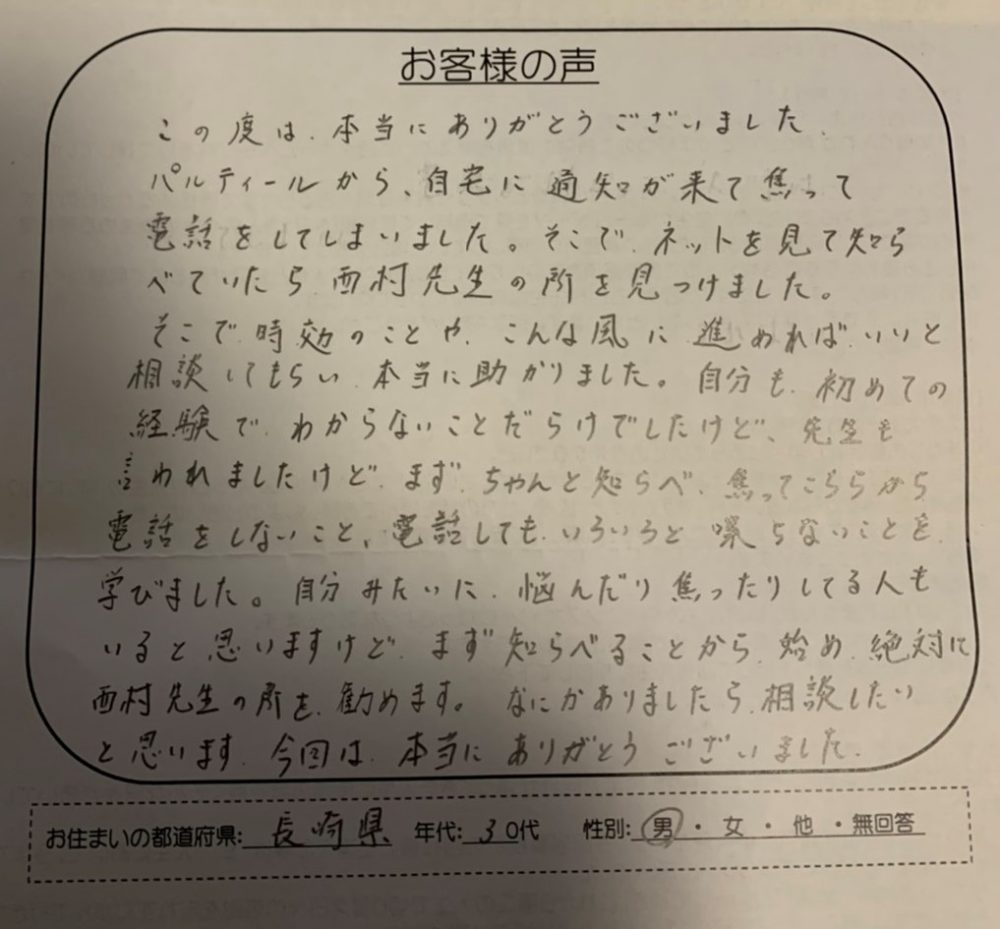 お客様の声
この度は、本当にありがとうございました。
パルティールから、自宅に通知が来て焦って
電話をしてしまいました。そこで、ネットを見て知ら
べていたら、西村先生の所を見つけました。
そこで時効のことや、こんな風に進めればいいと
相談してもらい、本当に助かりました。自分も、初めての
経験で、わからないことだらけでしたけど、先生も
言われましたけど、まず、ちゃんと知らべ、焦ってこちらから
電話をしないこと、電話しても、いろいろと喋らないことを、
学びました。自分みたいに、悩んだり焦ったりしてる人も
いると思いますけど、まず知らべることから、始め、絶対に
西村先生の所を、勧めます。なにかありましたら、相談したい
と思います。今回は、本当にありがとうございました。
お住まいの都道府県: 長崎県 年代: 30代 性別: 男・女・他・無回答